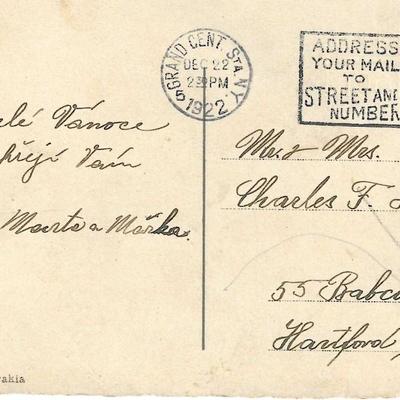 GRAND CENT. STA. N.Y.
DEC 22
230 PM
5 1922
ADDRESS
YOUR MAIL
TO
STREET AND
NUMBER
elé Vánoce
řejí Vám
Marta a Mářka.
Mr. & Mrs.
Charles F.
55 Babc
Hartford,
akia